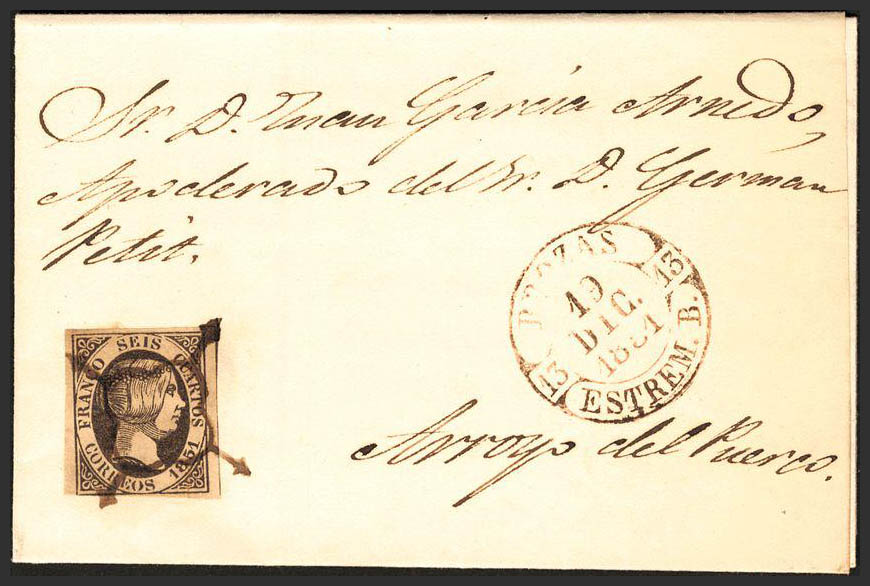 Sr. D. Juan García Arnedo,
Apoderado del Sr. D. Germán
Petit.
BROZAS
13
19
DIC.
1851
13
ESTREM. B.
FRANCO SEIS CUARTOS
CORREOS 1851
Arroyo del Puerco.